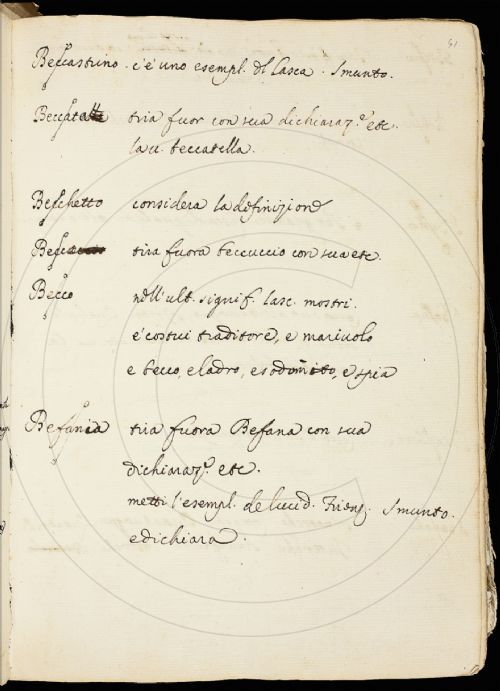 91.
Beccastrino. c'è uno esempl. dl Lasca. Smunto.
Beccata tira fuor con sua dichiaraz.e etc.
la v. beccatella.
Becchetto considera la definizione
Becc tira fuora beccuccio con sua etc.
Becco nell'ult. signif. lasc. mostri.
e' costui traditore, e mariuolo
e becco, e ladro, e sodomito, e spia
Befania tira fuora Befana con sua
dichiaraz.e etc.
metti l'esempl. de Smunto.
e dichiara.